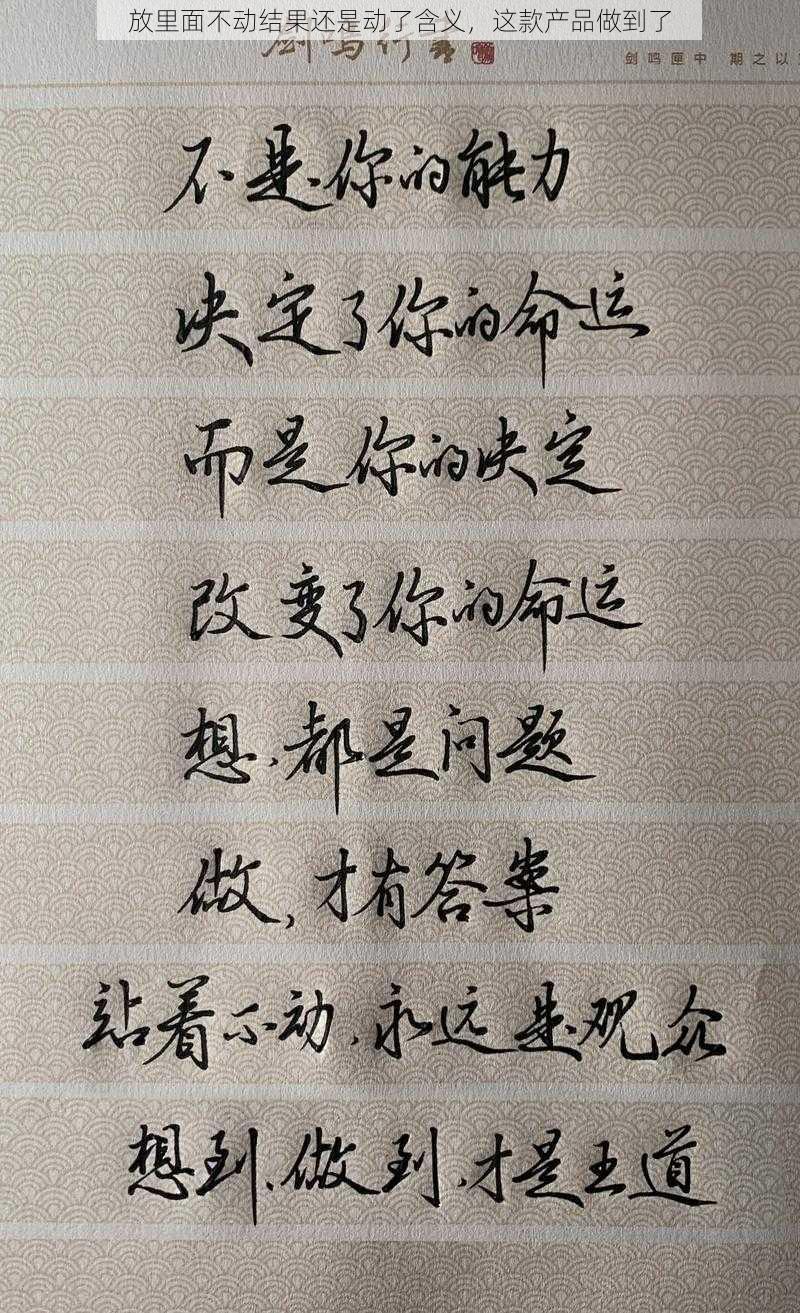 放里面不动结果还是动了含义，这款产品做到了
剑鸣行书
剑鸣匣中 期之以
不是你的能力
决定了你的命运
而是你的决定
改变了你的命运
想，都是问题
做，才有答案
站着不动，永远是观众
想到，做到，才是王道